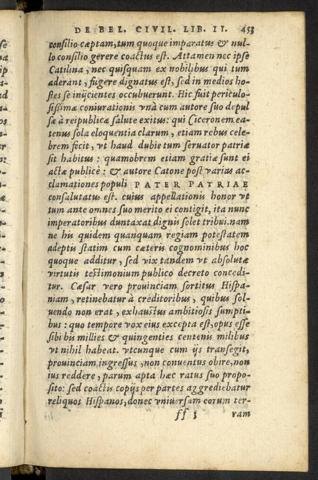 DE BEL. CIVIL. LIB. II. 453
consilio cæptam, tum quoque imparatus & nul-
lo consilio gerere coactus est. Attamen nec ipse
Catilina, nec quisquam ex nobilibus qui tum
aderant, fugere dignatus est, sed in medios ho-
stes se inijcientes occubuerunt. Hic fuit periculo-
sissimæ coniurationis vnà cum autore suo depul
sæ à reipublicæ salute exitus: qui Ciceronem ea-
tenus sola eloquentia clarum, etiam rebus cele-
brem fecit, vt haud dubie tum seruator patriæ
sit habitus: quamobrem etiam gratiæ sunt ei
actæ publicè: & autore Catone post varias ac-
clamationes populi PATER PATRIAE
consalutatus est. cuius appellationis honor vt
tum ante omnes suo merito ei contigit, ita nunc
imperatoribus duntaxat dignis solet tribui. nam
ne his quidem quanquam regiam potestatem
adeptis statim cum cæteris cognominibus hoc
quoque additur, sed vix tandem vt absolutæ
virtutis testimonium publico decreto concedi-
tur. Cæsar vero prouinciam sortitus Hispa-
niam, retinebatur à creditoribus, quibus sol-
uendo non erat, exhaustus ambitiosis sumpti-
bus: quo tempore vox eius excepta est, opus esse
sibi bis millies & quingenties centenis milibus
vt nihil habeat. vtcunque cum ijs transegit,
prouinciam ingressus, non conuentus obire, non
ius reddere, parum apta hæc ratus suo propo-
sito: sed coactis copijs per partes aggrediebatur
reliquos Hispanos, donec vniuersam eorum ter-
ff 3 ram